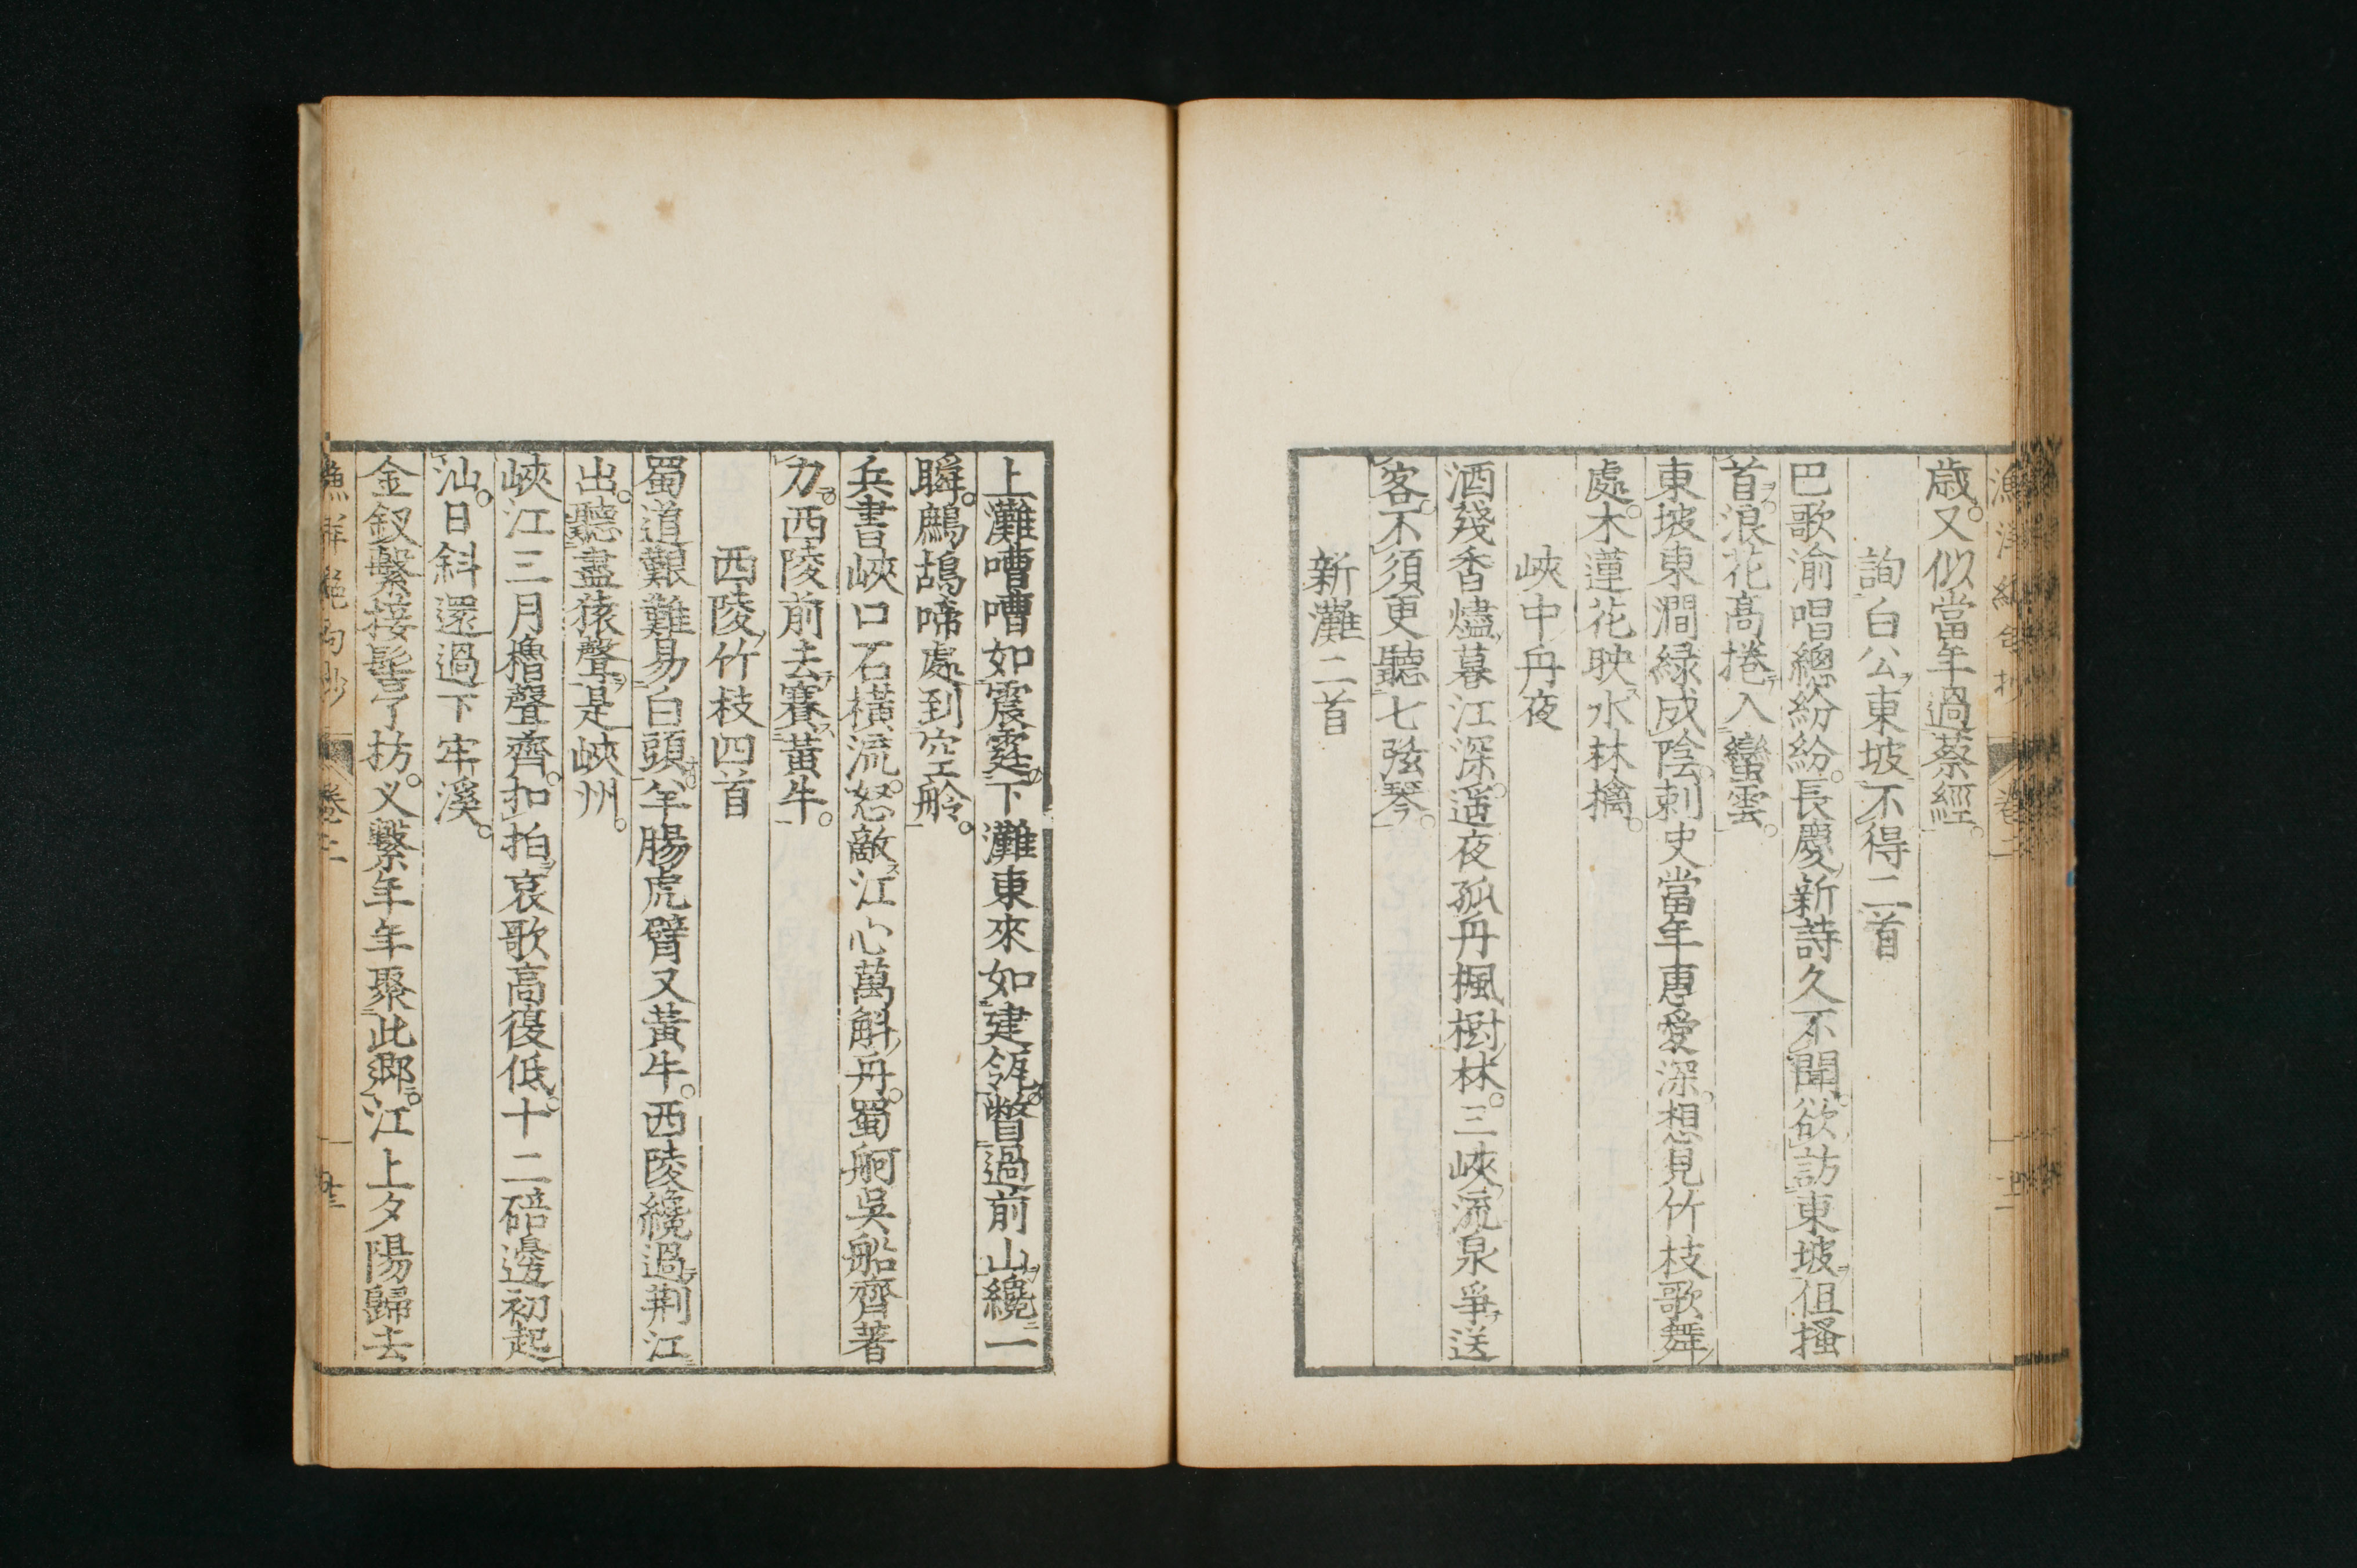 歳又似當年過蔡經
詢白公東坡不得二首
巴歌渝唱總紛紛長慶新詩久不聞欲訪東坡但搔
首浪花高捲入蠻雲
東坡東澗緑成陰刺史當年恵愛深想見竹枝歌舞
處木蓮花映水林擒
峽中舟夜
酒殘香燼暮江深遥夜孤舟楓樹林三峽流泉爭送
客不須更聽七弦琴
新灘二首
上灘嘈嘈如震霆下灘東來如建瓴瞥過前山纔一
瞬鷓鴣啼處到空舲
兵書峽口石横流怒敵江心萬斛舟蜀舸吳船齊著
力西陵前去賽黄牛
西陵竹枝四首
蜀道艱難易白頭羊腸虎臂又黄牛西陵纔過荆江
出聽盡猿聲是峽州
峽江三月櫓聲齊扣拍哀歌高復低十二碚邊初起
汕日斜還過下牢溪
金釵繫接髻丫坊义繋年年聚此郷江上夕陽歸去
漁洋絶句抄 卷二